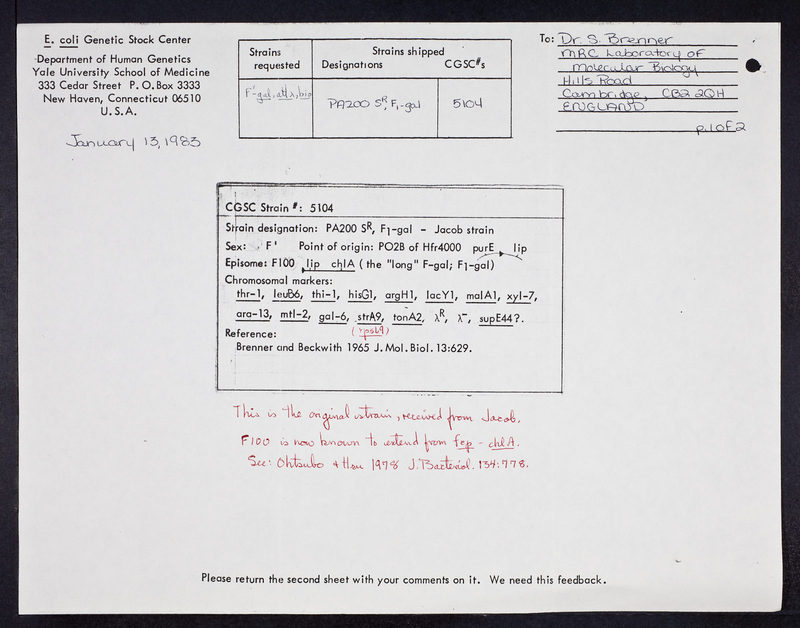 E. coli Genetic Stock Center
Department of Human Genetics
Yale University School of Medicine
333 Cedar Street P.O. Box 3333
New Haven, Connecticut 06510
U.S.A.
January 13, 1983
Strains requested
Strains shipped
Designations CGSC#s
F'-gal, attλ, bio
PA200 Sᴿ, F₁-gal 5104
To: Dr. S. Brenner
MRC Laboratory of
Molecular Biology
Hills Road
Cambridge, CB2 2QH
ENGLAND
p. 1 of 2
CGSC Strain #: 5104
Strain designation: PA200 Sᴿ, F₁-gal – Jacob strain
Sex: F' Point of origin: PO2B of Hfr4000 purE lip
Episome: F100 lip chlA (the "long" F-gal; F₁-gal)
Chromosomal markers:
thr-1, leuB6, thi-1, hisG1, argH1, lacY1, malA1, xyl-7,
ara-13, mtl-2, gal-6, strA9, tonA2, λᴿ, λ⁻, supE44?.
(rpsL9)
Reference:
Brenner and Beckwith 1965 J. Mol. Biol. 13:629.
This is the original strain, received from Jacob.
F100 is now known to extend from fep - chlA.
See: Ohtsubo & Hsu 1978 J. Bacteriol. 134:778.
Please return the second sheet with your comments on it. We need this feedback.